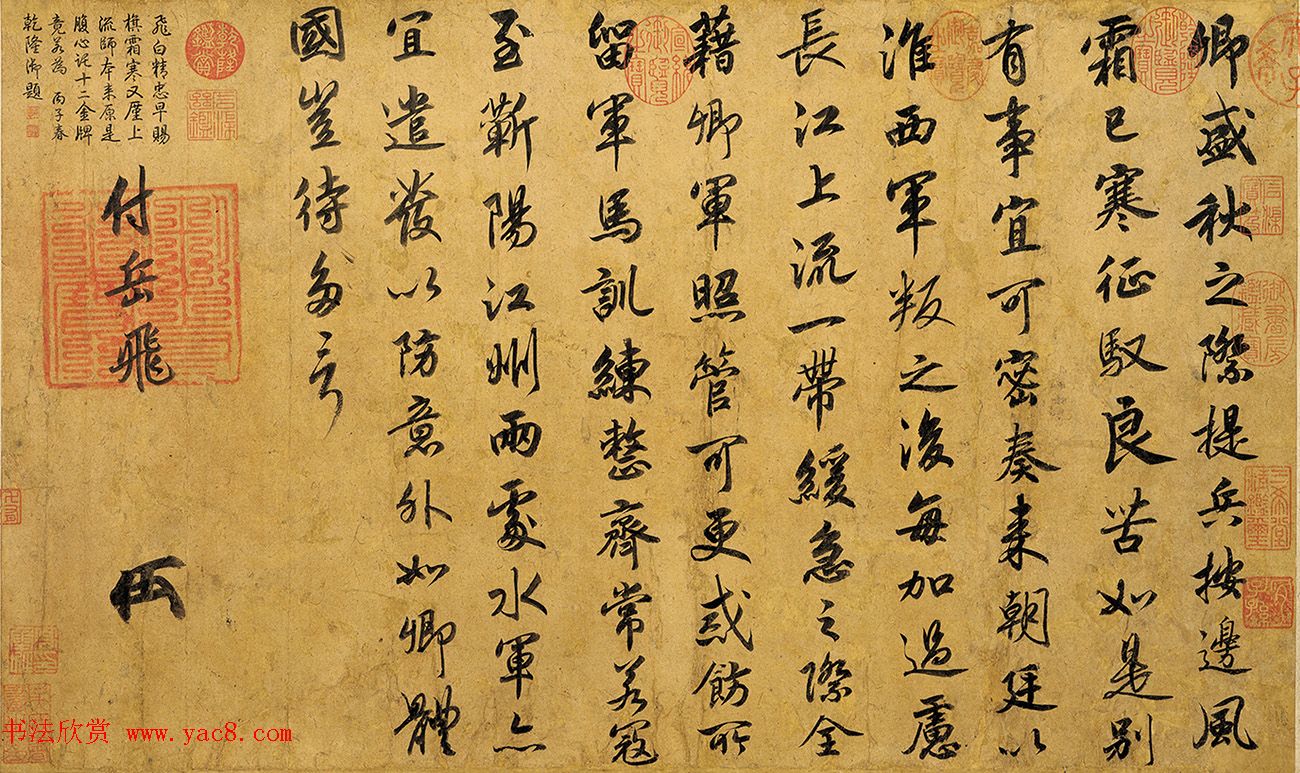 卿盛秋之際提兵按邊風
霜已寒征馭良苦如是別
有事宜可密奏来朝廷以
淮西軍叛之後每加過慮
長江上流一帶緩急之際全
藉卿軍照管可更戒飭所
留軍馬訓練整齊常若寇
至蘄陽江州兩處水軍亦
宜遣發以防意外如卿體
國豈待多言
付岳飛
飛白精忠早賜
旗霜寒又歷上
流師本来原是
腹心託十二金牌
竟若為 丙子春
乾隆御題
书法欣赏 www.yac8.com